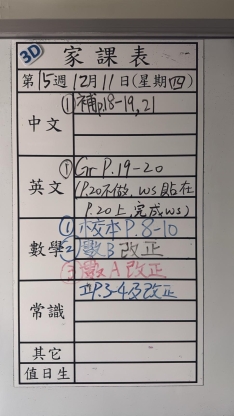 3D
家課表
第15週12月11日(星期四)
中文
①補p.18-19,21
英文
①Gr P.19-20
(P.20不做, ws貼在
P.20上,完成ws)
數學
①小交本P.8-10
②數B 改正
③數A 改正
常識
P.3-4及改正
其它
值日生